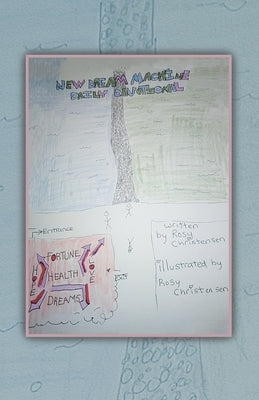 NEW DREAM MACHINE
DAILY DEVOTIONAL
Entrance
FORTUNE
HOPE
HEALTH
LOVE
DREAMS
Exit
Written
by Rosy
Christensen
illustrated by
Rosy
Christensen